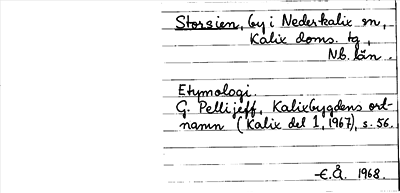 Storsien, by i Nederkalix sn,
Kalix doms. tg,
Nb. län.
Etymologi.
G. Pellijeff, Kalixbygdens ort-
namn (Kalix del 1, 1967), s. 56.
E.Å. 1968.